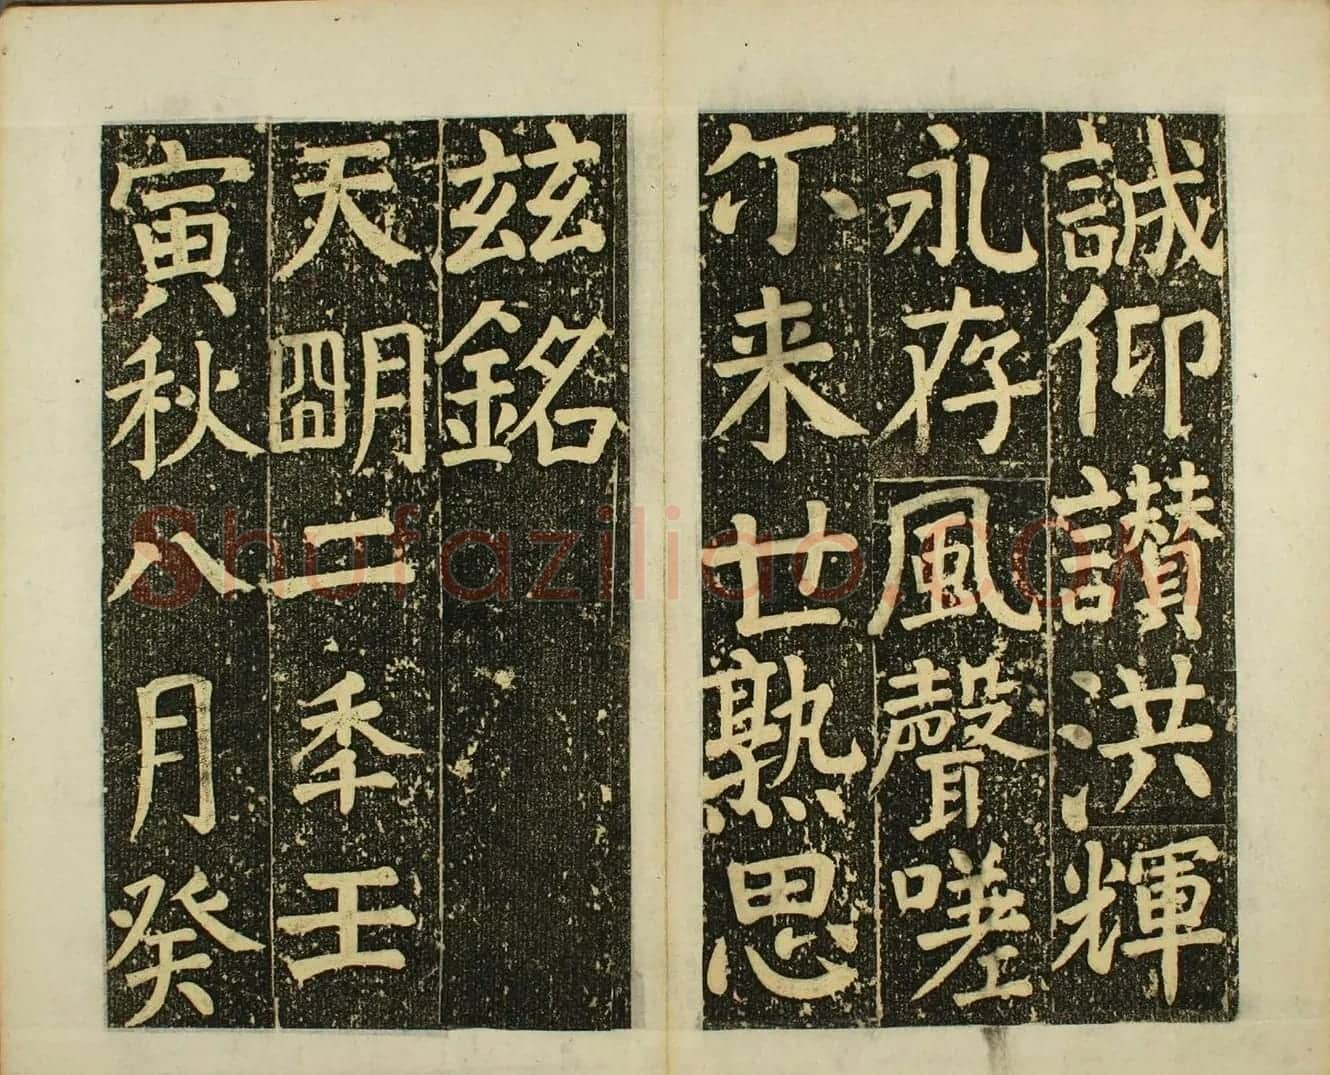 誠仰讃洪輝
永存風聲嗟
尒来廿熟思
玆銘
天朙二秊壬
寅秋八月癸
Shufaziliao.COM